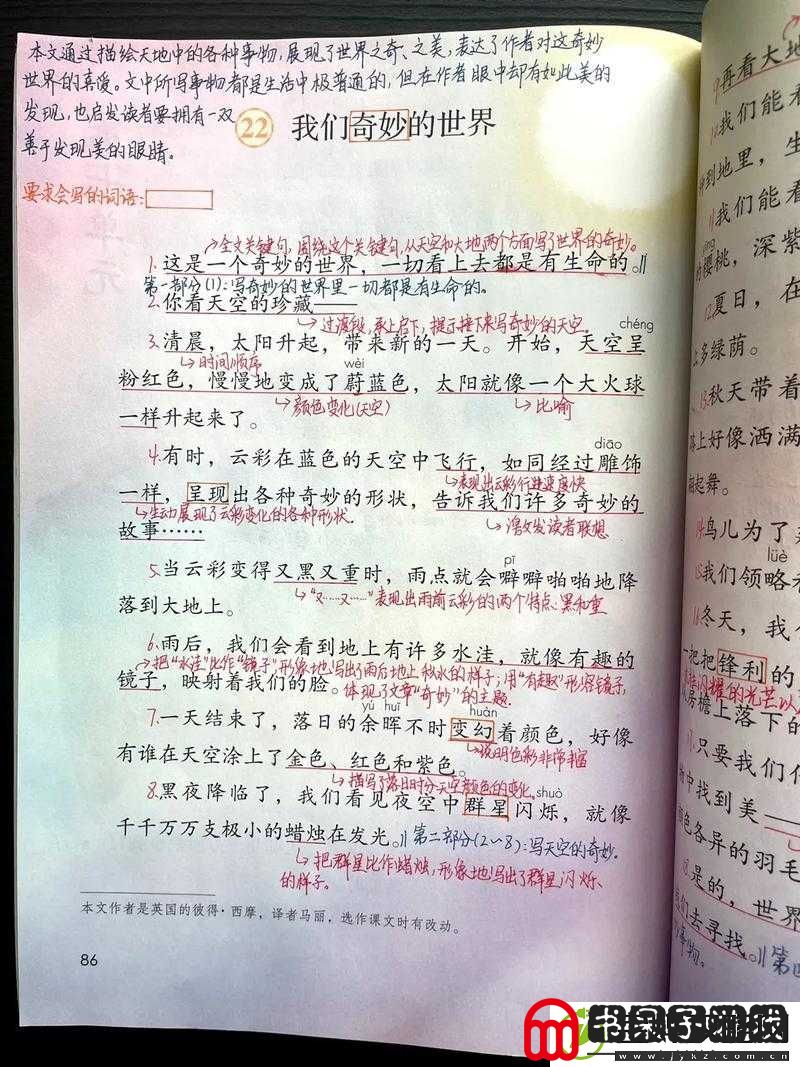 本文通过描绘天地中的各种事物,展现了世界之奇、之美,表达了作者对这奇妙
世界的真爱。文中所写事物都是生活中极普通的,但在作者眼中却有如此美的
发现,也启发读者要拥有一双
善于发现美的眼睛。
22 我们奇妙的世界
要求会写的词语:
全文关键句,围绕这个关键句,从天空和大地两个方面写了世界的奇妙。
1.这是一个奇妙的世界,一切看上去都是有生命的。
第一部分(1):写奇妙的世界里一切都是有生命的。
2.你看天空的珍藏——
过渡段,承上启下,提示接下来写奇妙的天空。
chéng
3.清晨,太阳升起,带来新的一天。开始,天空呈
时间顺序
wèi
粉红色,慢慢地变成了蔚蓝色,太阳就像一个大火球
颜色变化(天空)
比喻
一样升起来了。
diāo
4.有时,云彩在蓝色的天空中飞行,如同经过雕饰
表现出云彩行进速度快
一样,呈现出各种奇妙的形状,告诉我们许多奇妙的
生动展现了云彩变化的各种形状.
激发读者联想
故事……
pī
5.当云彩变得又黑又重时,雨点就会噼噼啪啪地降
“又……又……”表现出雨前云彩的两个特点:黑和重
落到大地上。
6.雨后,我们会看到地上有许多水洼,就像有趣的
把“水洼”比作“镜子”形象地写出了雨后地上积水的样子;用“有趣”形容镜子,
镜子,映射着我们的脸。
体现了文章“奇妙”的主题.
yú huī huàn
7.一天结束了,落日的余晖不时变幻着颜色,好像
说明色彩非常丰富
有谁在天空涂上了金色、红色和紫色。
描写了落日时分天空颜色的变化
shuò
8.黑夜降临了,我们看见夜空中群星闪烁,就像
千千万万支极小的蜡烛在发光。
第二部分(2~8):写天空的奇妙.
把群星比作蜡烛,形象地写出了群星闪烁
的样子.
本文作者是英国的彼得·西摩,译者马丽,选作课文时有改动。
86
再看大地
我们能看
种到地里,生
我们能看
的樱桃,深紫
12.夏日,在
多绿荫。
秋天带着
路上好像洒满
翩起舞。
鸟儿为了
lüè
我们领略
16.冬天,我
一把把锋利的
闪耀的光芒
房檐上落下的
只要我们
物中找到美——
颜色各异的羽毛
是的,世界
们去寻找。
www.jykz.com.cn